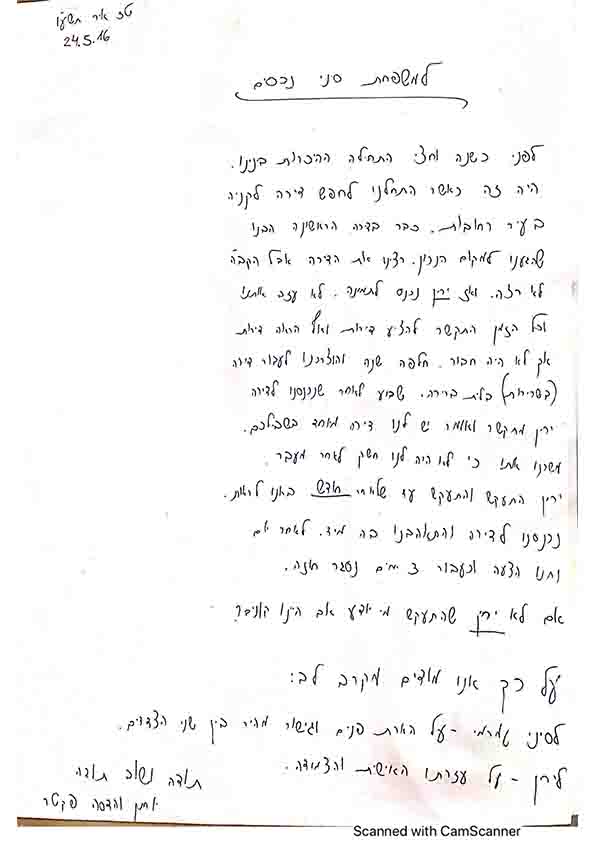 טז אייר תשע"ו
24.5.16
למשפחת סיני נכסים
לפני כשנה וחצי התחילה ההיכרות בנינו.
היה זה כאשר התחלנו לחפש דירה לקניה
בעיר רחובות. כבר בדירה הראשונה הבנו
שהגענו למקום הנכון. רצינו את הדירה אבל הקב"ה
לא רצה. ואז ירין נכנס לתמונה. לא עזב אותנו
וכל הזמן התקשר להציע דירות ואף הראה דירות
אך לא היה חיבור. חלפה שנה והוצרכנו לעבור דירה
(בשכירות) בלית ברירה. שבוע לאחר שנכנסנו לדירה
ירין מתקשר ואומר יש לנו דירה מיוחד בשבילכם.
משכנו אותו כי לא היה לנו חשק לאחר מעבר.
ירין התעקש והתעקש עד שלאחר חודש באנו לראות.
נכנסנו לדירה והתאהבנו בה מיד. לאחר יום
נתנו הצעה וכעבור 3 ימים נסגר חוזה.
אם לא ירין שהתעקש מי יודע אם היינו קונים?
על כך אנו מודים מקרב לב:
לסיני - על הארת פנים וגישור מהיר בין שני הצדדים.
לירין - על עזרתו האישית והצמודה.
תודה ושוב תודה
והדסה פקטר
Scanned with CamScanner